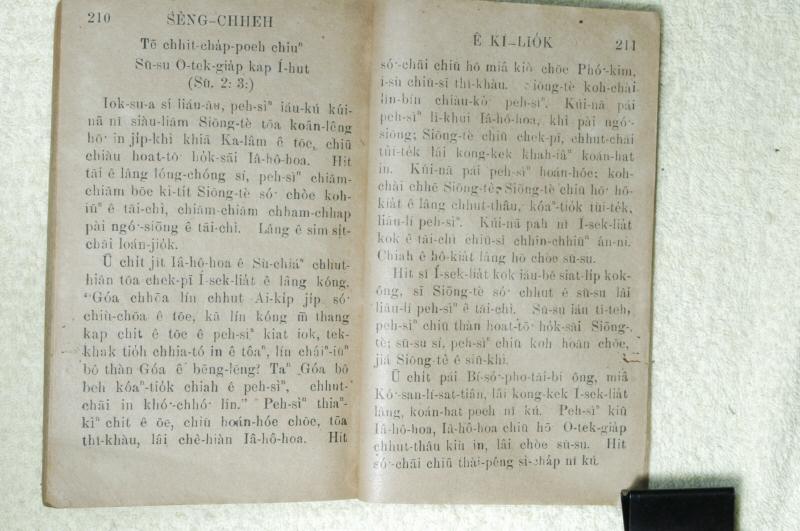 210 SÈNG-CHHEH
Tō chhit-cha̍p-poeh chiuⁿ
Sū-su O-tek-gia̍p kap Í-hut
(Sū. 2: 3:)
Iok-su-a sí liáu-āu, peh-sìⁿ iáu-kú kúi-
nā nî siàu-liām Siōng-tè tōa koân-lêng
hō͘ in ji̍p-khì khiā Ka-lâm ê tōe, chiū
chiàu hoat-tō͘ ho̍k-sāi Iâ-hô-hoa. Hit
tāi ê lâng lóng-chóng sí, peh-sìⁿ chiām-
chiām bōe ki-tit Siōng-tè só͘ chòe koh-
iūⁿ ê tāi-chì, chiām-chiām chham-chhap
pài ngó͘-siōng ê tāi-chì. Lâng ê sim si̍t-
chāi loán-jio̍k.
Ū chi̍t ji̍t Iâ-hô-hoa ê Sù-chiá chhut-
hiān tōa chek-pī Í-sek-lia̍t ê lâng kóng,
“Góa chhōa lín chhut Ai-ki̍p ji̍p só͘
chiù-chōa ê tōe, kā lín kóng m̄ thang
kap chit ê tōe ê peh-sìⁿ kiat iok, tek-
khak tio̍h chhia-tó in ê tôaⁿ, lín cháiⁿ-iūⁿ
bô thàn Góa ê bēng-lēng? Taⁿ Góa bô
beh kóaⁿ-tio̍k chiah ê peh-sìⁿ, chhut-
chāi in khó͘-chhó͘ lín.” Peh-sìⁿ thiaⁿ-
kìⁿ chit ê ōe, chiū hoán-hóe chōe, tōa
thî-khàu, lâi chè-hiàn Iâ-hô-hoa. Hit
Ê KÌ-LIO̍K 211
só͘-chāi chiū hō miâ kiò chòe Phó͘-kim,
ì-sù chiū-sī thî-khàu. Siōng-tè koh-chài
lîn-bín chiàu-kò͘ peh-sìⁿ. Kúi-nā pái
peh-sìⁿ lī-khui Iâ-hô-hoa, khì pài ngó͘-
siōng; Siōng-tè chiū chek-pī, chhut-chāi
tùi-te̍k lâi kong-kek khah-iâⁿ koán-hat
in. Kúi-nā pái peh-sìⁿ hoán-hóe; koh-
chài chhē Siōng-tè; Siōng-tè chiū hō͘ hô-
kia̍t ê lâng chhut-thâu, kóaⁿ-tio̍k tùi-te̍k,
liāu-lí peh-sìⁿ. Kúi-nā pah nî Í-sek-lia̍t
kok ê tāi-chì chiū-sī chhin-chhiūⁿ án-ni.
Chiah ê hô-kia̍t lâng hō chòe sū-su.
Hit sî Í-sek-lia̍t kok iáu-bē siat-li̍p kok-
ông, sī Siōng-tè só͘ chhut ê sū-su lâi
liāu-lí peh-sìⁿ ê tāi-chì. Sū-su iáu tī-teh,
peh-sìⁿ chiū thàn hoat-tō͘ ho̍k-sāi Siōng-
tè; sū-su sí, peh-sìⁿ chiū koh hoān chōe,
jiá Siōng-tè ê siū-khì.
Ū chi̍t pái Bí-só͘-pho-tāi-bí ông, miâ
Kó͘-san-lí-sat-tiân, lâi kong-kek Í-sek-lia̍t
lâng, koán-hat poeh nî kú. Peh-sìⁿ kiû
Iâ-hô-hoa, Iâ-hô-hoa chiū hō͘ O-tek-gia̍p
chhut-thâu kiù in, lâi chòe sū-su. Hit
só͘-chāi chiū thài-pêng sì-cha̍p nî kú.